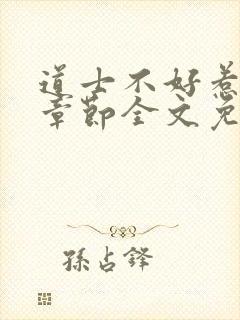 道士不好惹
章節全文免
孫占鋒